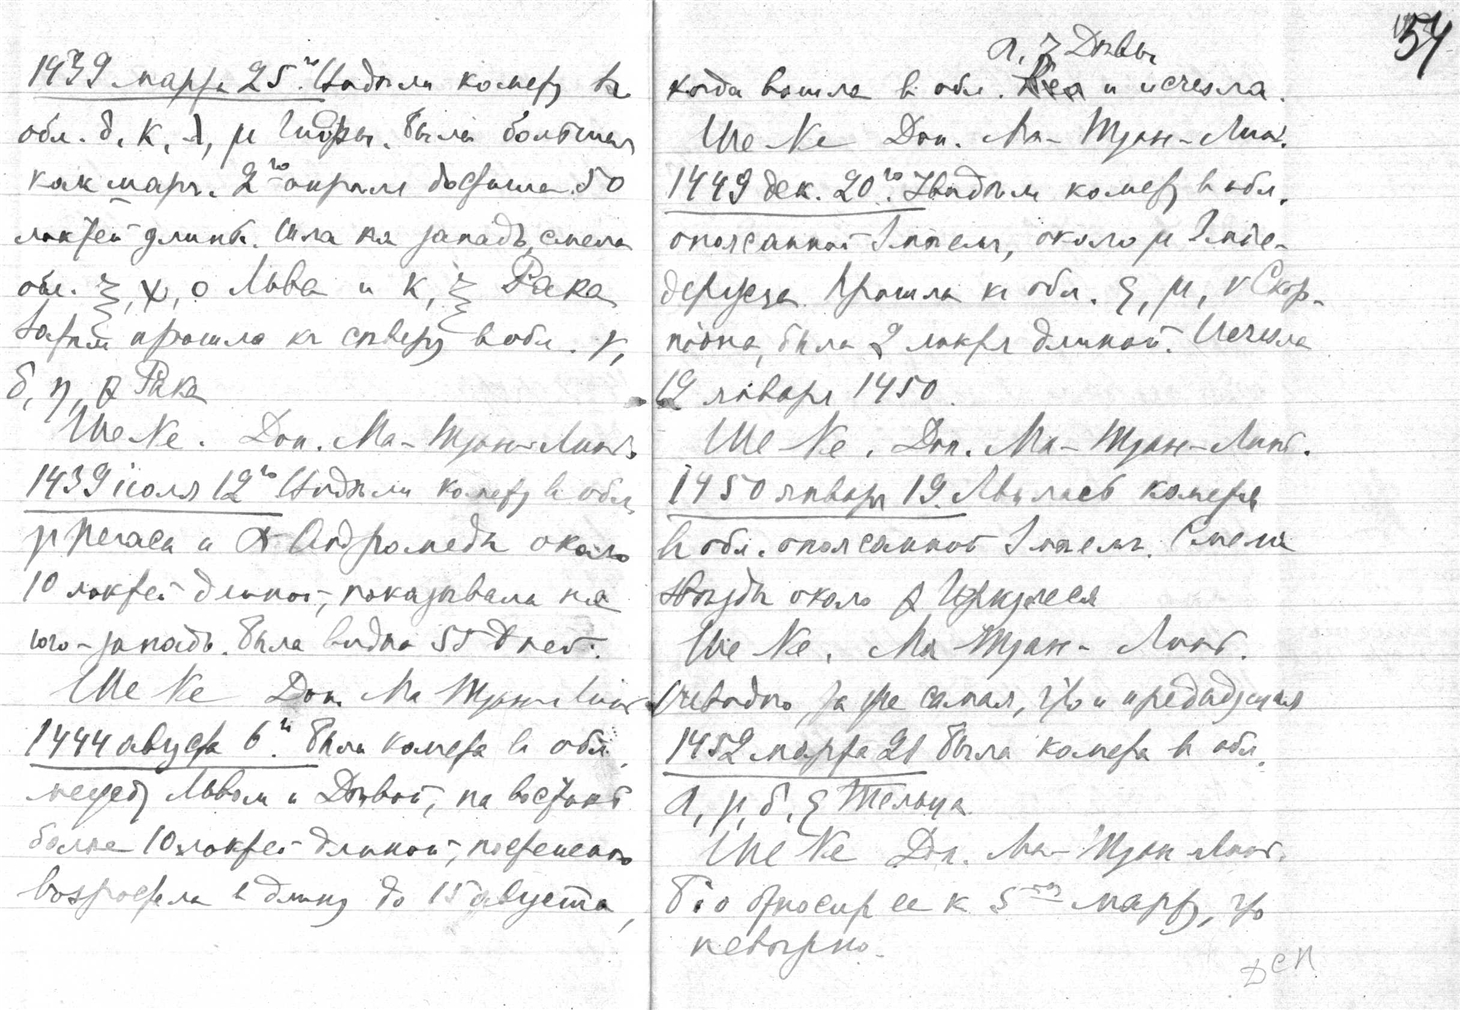 1439 марта 25го. Увидѣли комету въ
обл. δ, κ, λ, μ Гидры. Была большая
как марч. 2го апрѣля достигла 50
локтей длины. Шла на западъ, смела
обл. ξ, χ, ο Льва и κ, ξ Рака
Затѣм прошла къ сѣверу в обл. γ,
δ, η, θ Рака
Ше Ке. Доп. Ма-Туан-Линъ.
1439 іюля 12го Увидѣли комету в обл.
γ Пегаса и α Андромеды около
10 локтей длиной, показывала на
юго-западъ. Была видна 55 дней.
Ше Ке Доп. Ма Туан-Линъ
1444 августа 6го. Была комета в обл.
между Львом и Дѣвой, на востокѣ
болѣе 10 локтей длиной, постепенно
возростала в длину до 15 августа,
54
α, ζ Дѣвы
когда вошла в обл. и исчезла.
Ше Ке Доп. Ма-Туан-Лин.
1449 дек. 20го. Увидѣли комету в обл.
опоясанной Змѣем, около μ Змѣе-
держца. Прошла къ обл. ξ, μ, ν Скор-
піона, была 2 локтя длиной. Исчезла
12 января 1450.
Ше Ке. Доп. Ма-Туан-Линъ.
1450 января 19. Явилась комета
в обл. опоясанной Змѣемъ. Смела
звѣзды около Геркулеса
Ше Ке. Ма Туан-Линъ.
Очевидно, та же самая, что и предыдущая
1452 марта 21 была комета в обл.
α, γ, δ, ξ Тельца
Ше Ке Доп. Ма-Туан Линъ.
Біо относит ее к 5му марту, что
невѣрно.